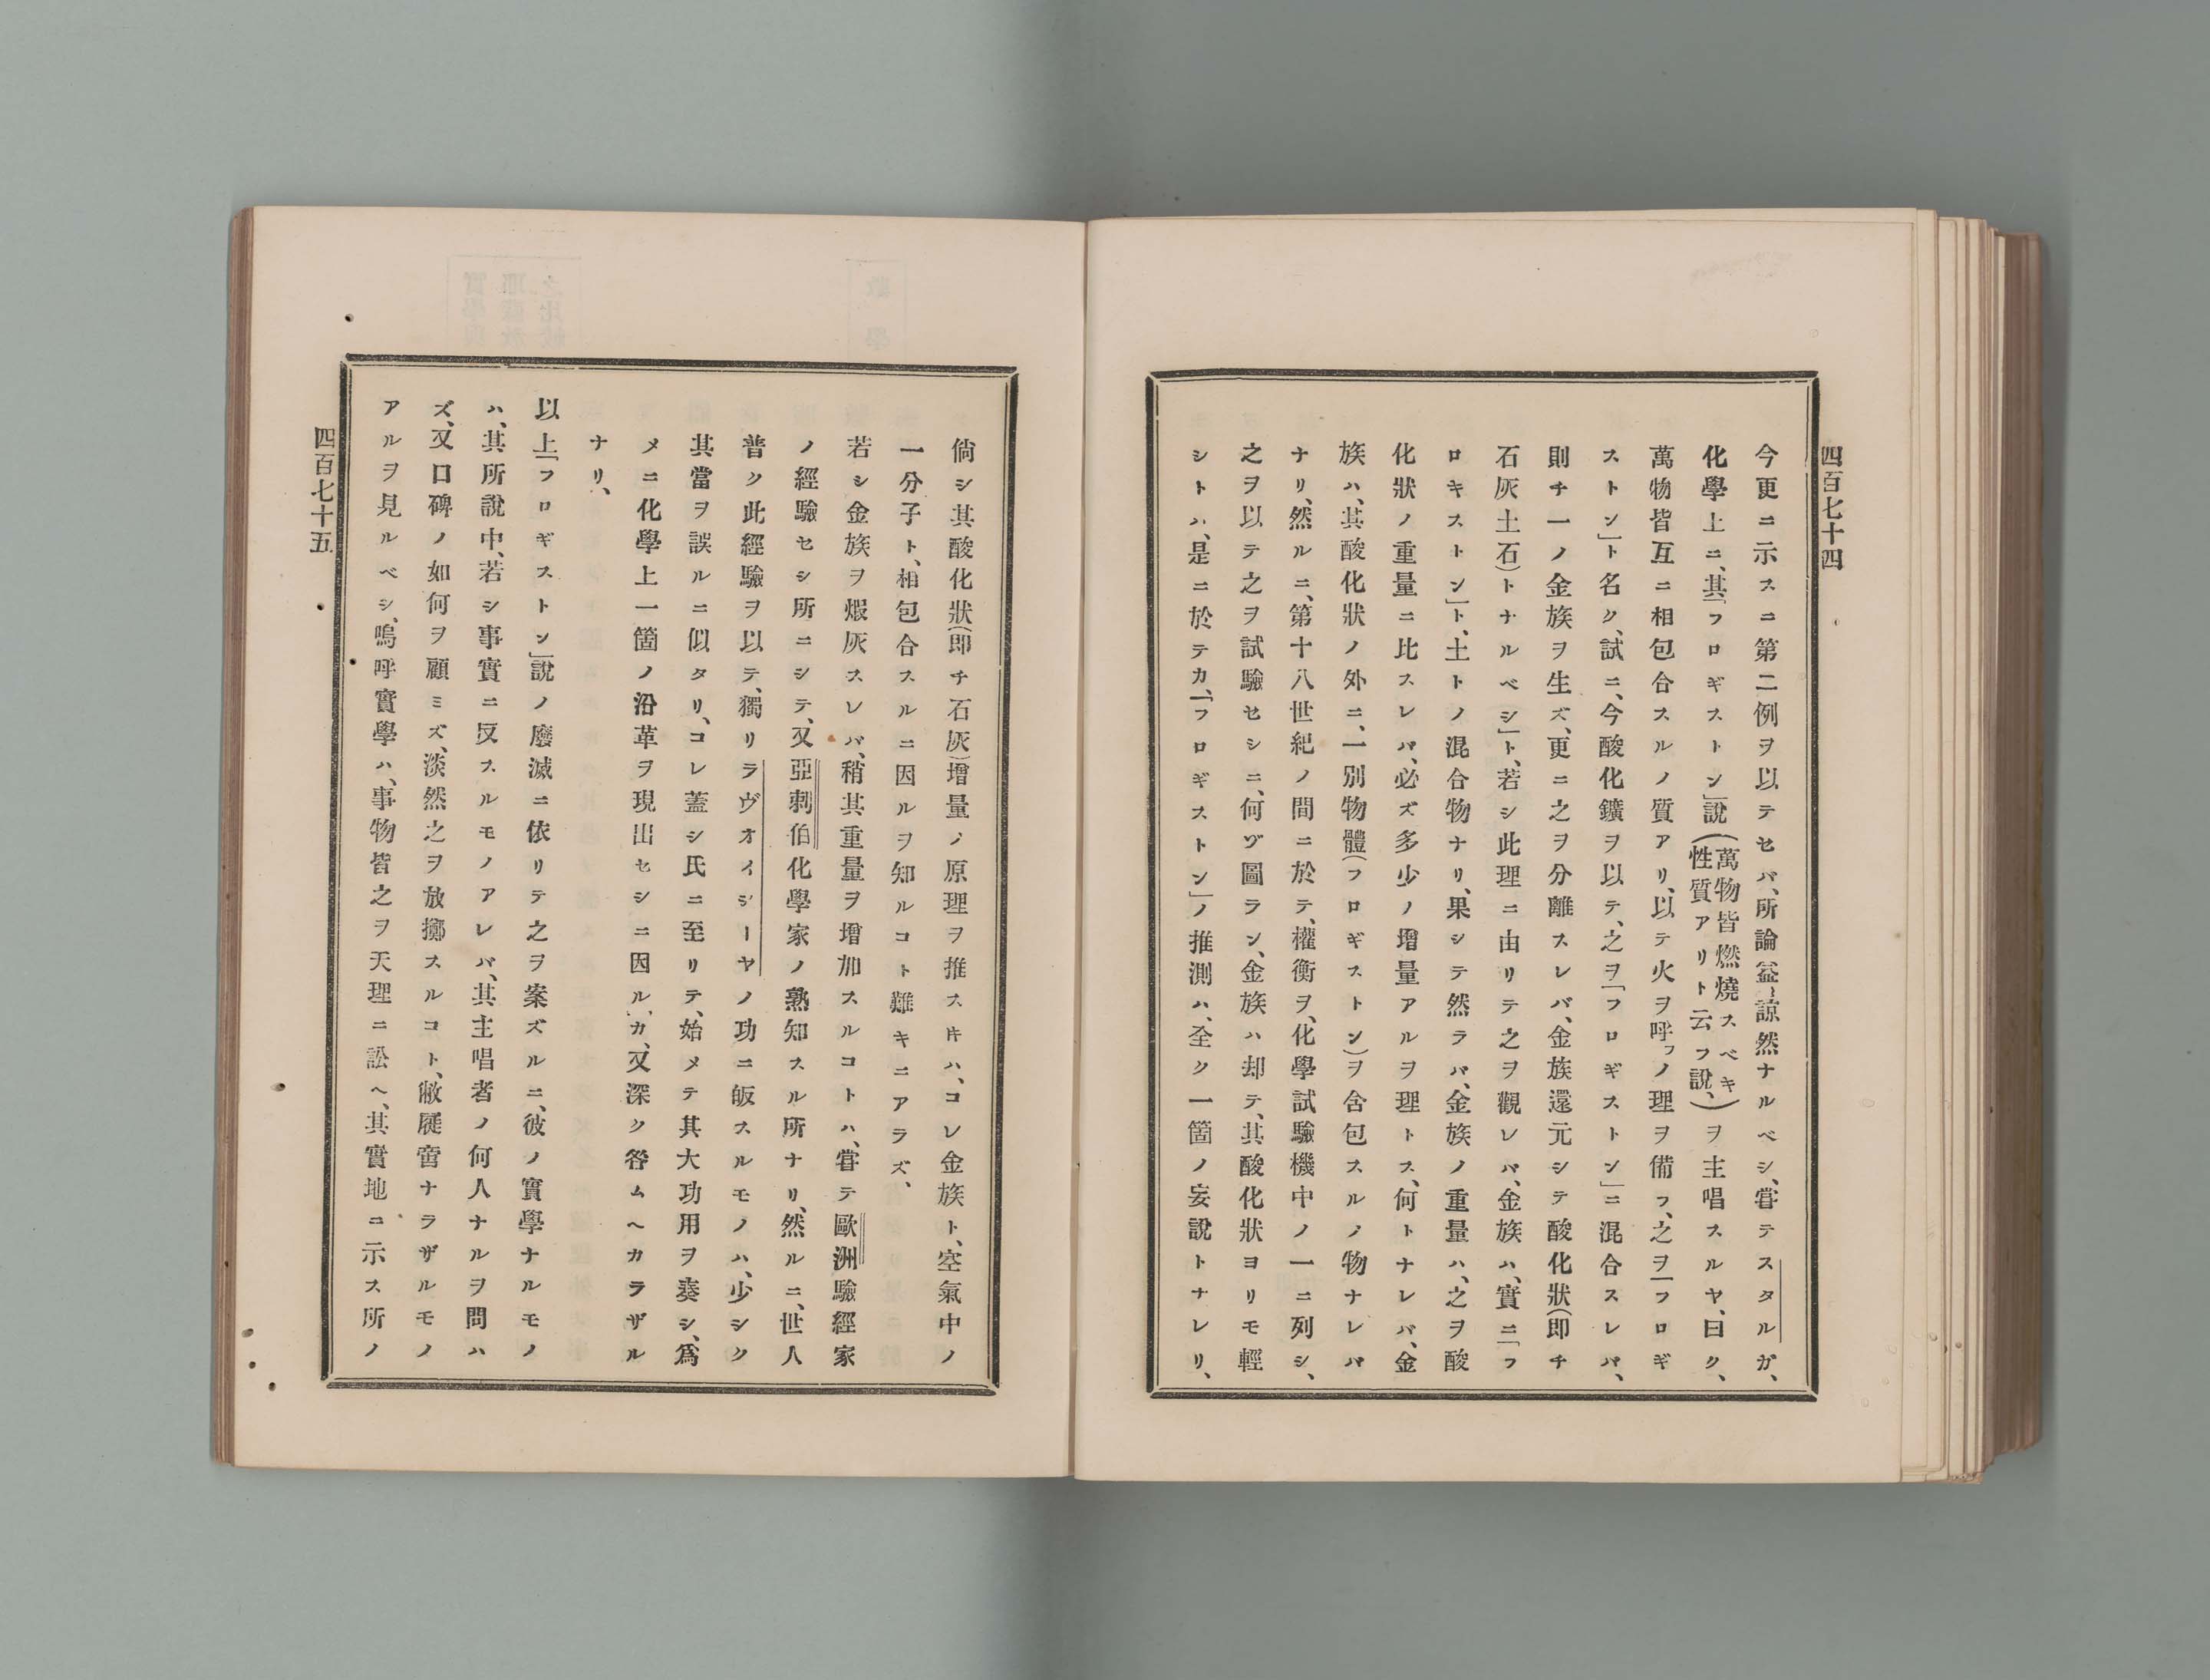 四百七十四
今更ニ示スニ第二例ヲ以テセバ、所論益〻諒然ナルベシ、甞テスタルガ、
化學上ニ、其「フロギストン」說(萬物皆燃燒スベキ性質アリト云フ說、)ヲ主唱スルヤ、曰ク、
萬物皆互ニ相包合スルノ質アリ、以テ火ヲ呼フノ理ヲ備フ、之ヲ「フロギ
ストン」ト名ク、試ニ、今酸化鑛ヲ以テ、之ヲ「フロギストン」ニ混合スレバ、
則チ一ノ金族ヲ生ズ、更ニ之ヲ分離スレバ、金族還元シテ酸化狀(即チ
石灰土石)トナルベシ」ト、若シ此理ニ由リテ之ヲ觀レバ、金族ハ、實ニ「フ
ロキストン」ト、土トノ混合物ナリ、果シテ然ラバ、金族ノ重量ハ、之ヲ酸
化狀ノ重量ニ比スレバ、必ズ多少ノ增量アルヲ理トス、何トナレバ、金
族ハ、其酸化狀ノ外ニ、一別物體(フロギストン)ヲ含包スルノ物ナレバ
ナリ、然ルニ、第十八世紀ノ間ニ於テ、權衡ヲ、化學試驗機中ノ一ニ列シ、
之ヲ以テ之ヲ試驗セシニ、何ヅ圖ラン、金族ハ却テ、其酸化狀ヨリモ輕
シトハ、是ニ於テカ、「フロギストン」ノ推測ハ、全ク一箇ノ妄說トナレリ、
倘シ其酸化狀(即チ石灰)增量ノ原理ヲ推スキハ、コレ金族ト、空氣中ノ
一分子ト、相包合スルニ因ルヲ知ルコト難キニアラズ、
若シ金族ヲ煆灰スレバ、稍其重量ヲ增加スルコトハ、甞テ歐洲驗經家
ノ經驗セシ所ニシテ、又亞剌伯化學家ノ熟知スル所ナリ、然ルニ、世人
普ク此經驗ヲ以テ、獨リラヴオイジーヤノ功ニ皈スルモノハ、少シク
其當ヲ誤ルニ似タリ、コレ蓋シ氏ニ至リテ、始メテ其大功用ヲ奏シ、爲
メニ化學上一箇ノ沿革ヲ現出セシニ因ル、カ、又深ク咎ムヘカラザル
ナリ、
以上「フロギストン」說ノ廢滅ニ依リテ之ヲ案ズルニ、彼ノ實學ナルモノ
ハ、其所說中、若シ事實ニ反スルモノアレバ、其主唱者ノ何人ナルヲ問ハ
ズ、又口碑ノ如何ヲ顧ミズ、淡然之ヲ放擲スルコト、敝屣啻ナラザルモノ
アルヲ見ルベシ、嗚呼實學ハ、事物皆之ヲ天理ニ訟ヘ、其實地ニ示ス所ノ
四百七十五